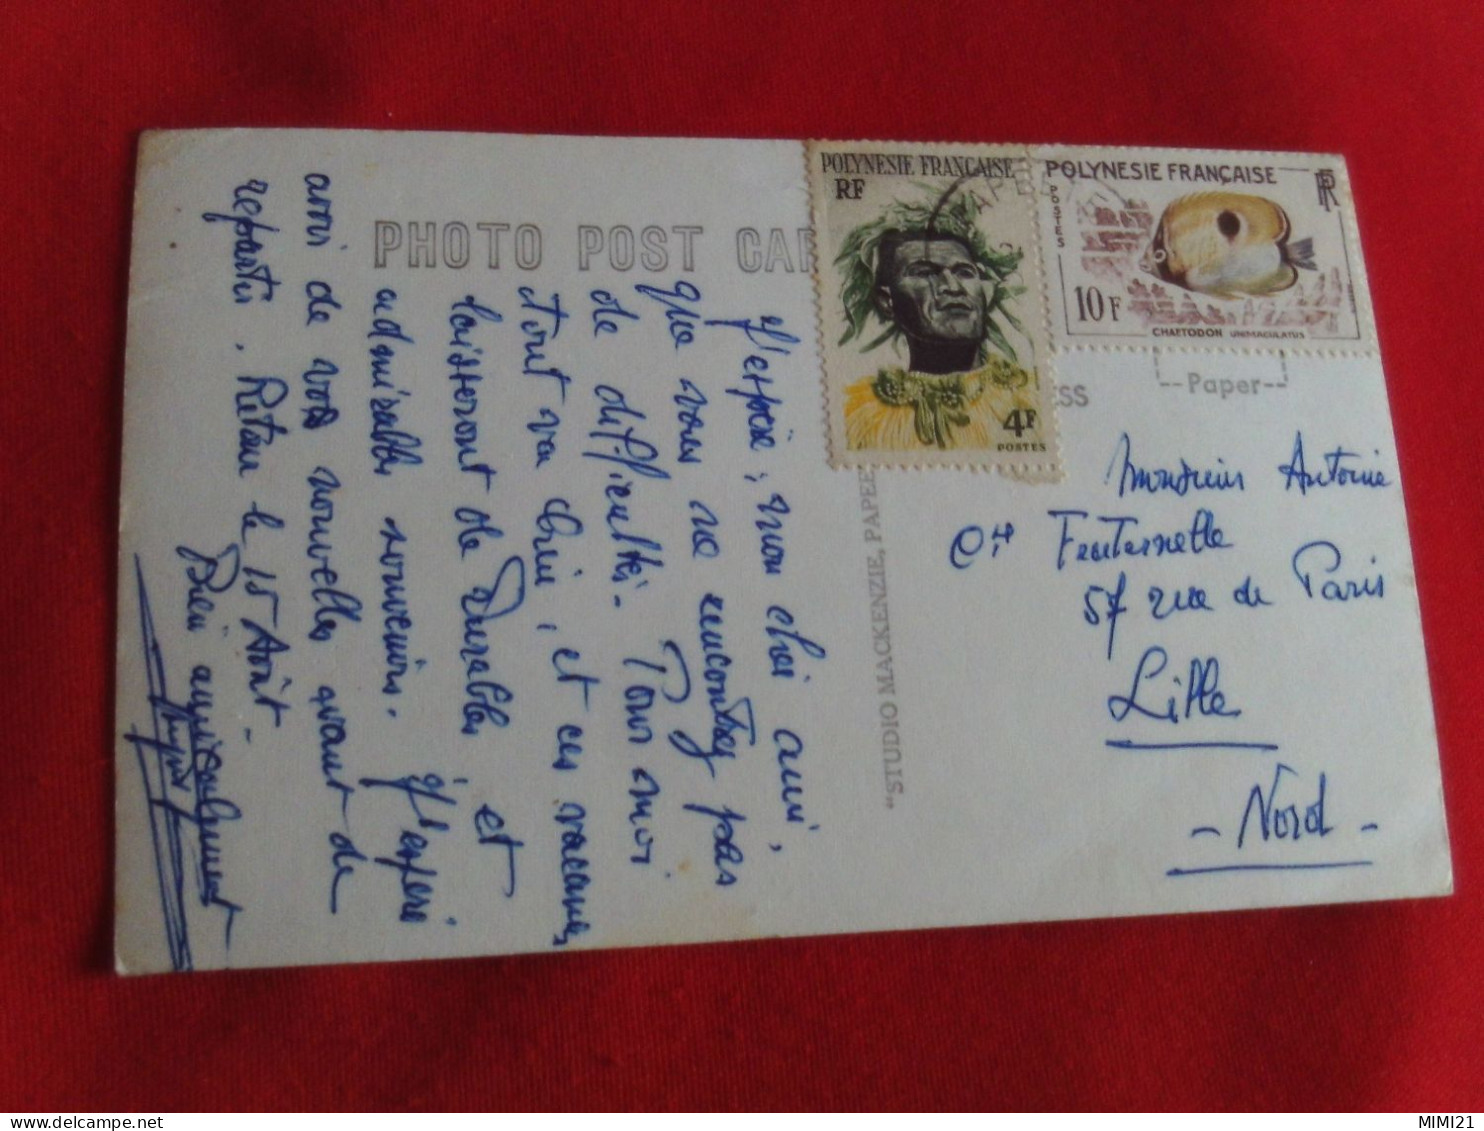 PHOTO POST CAR
J'espère, mon cher ami,
que vous ne rencontrez pas
de difficultés. Pour moi
tout va bien, et ces vacances
laisseront de durables et
admirables souvenirs. J'espère
avoir de vos nouvelles avant de
repartir. Retour le 15 Août -
Bien amicalement
"STUDIO MACKENZIE, PAPEE
POLYNESIE FRANÇAISE
RF
4F
POSTES
POLYNESIE FRANÇAISE
RF
POSTES
10F
CHAETODON UNIMACULATUS
PAPEE
SS
--Paper--
Monsieur Antoine
57 rue de Paris
Lille
- Nord -
MIMI21